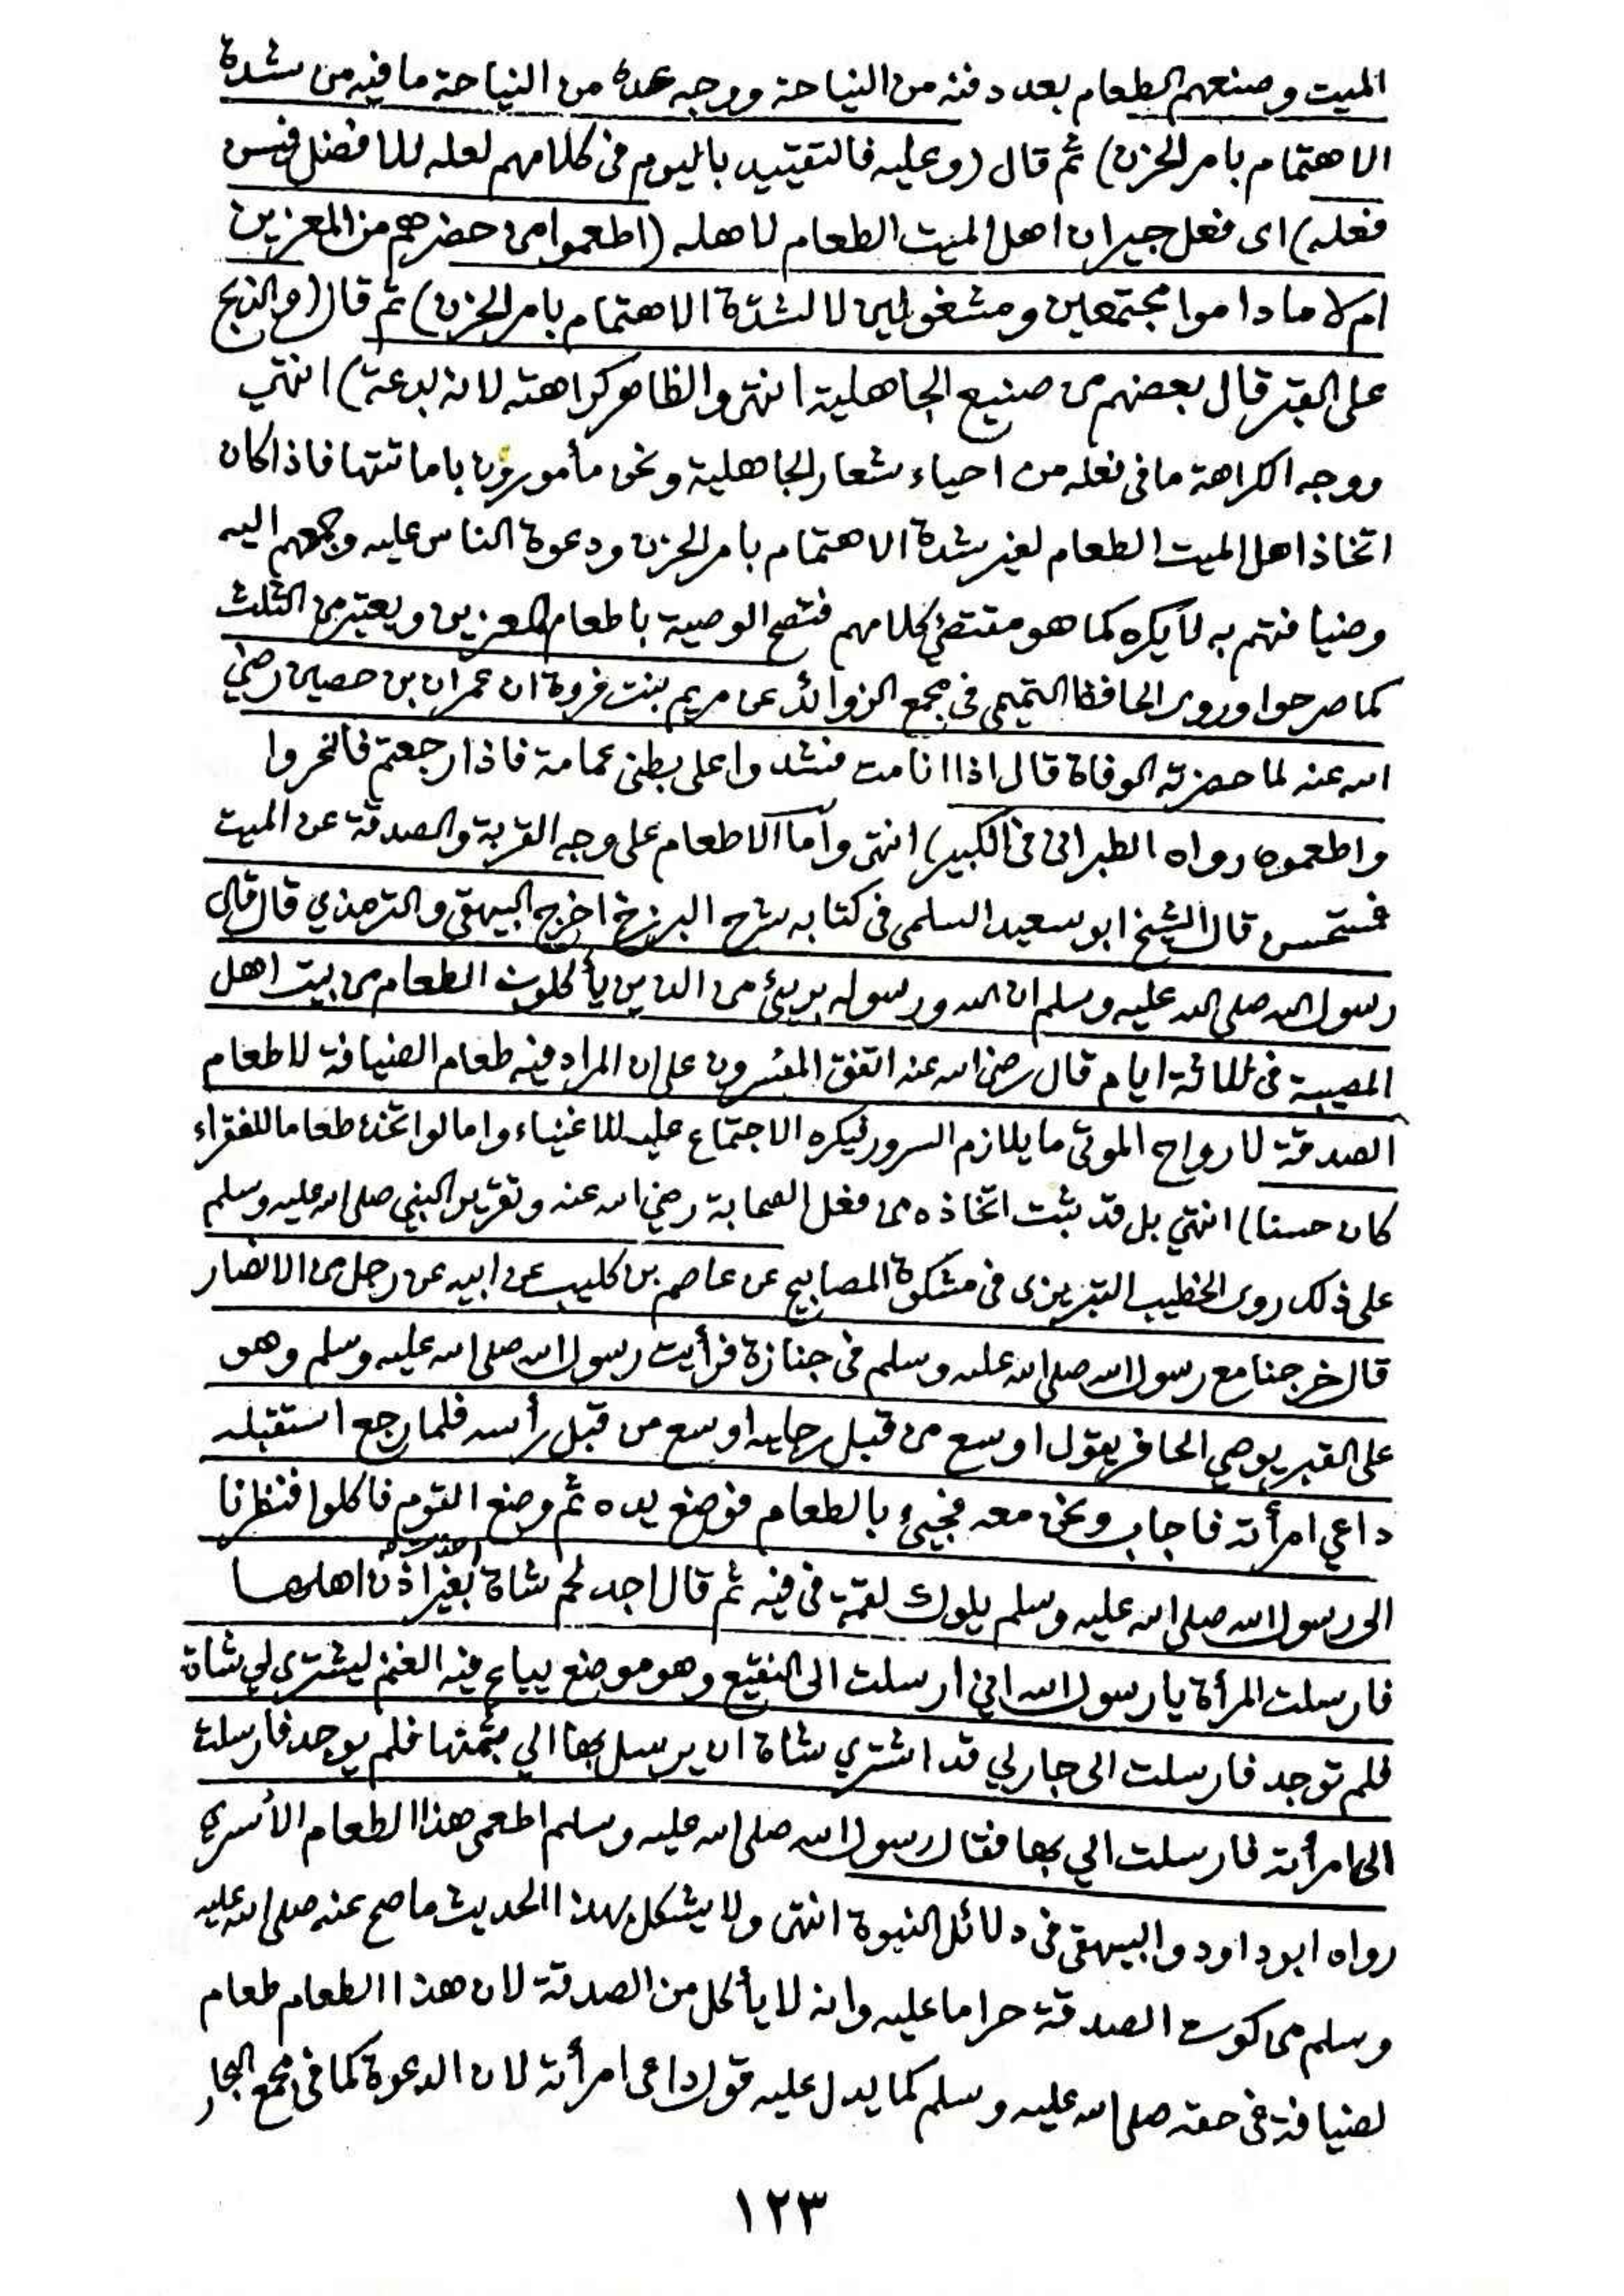 الميت وصنعهم الطعام بعد دفنه من النياحة ووجه عده من النياحة ما فيه من شدة
الاهتمام بامر الحزن) ثم قال (وعليه فالتقييد باليوم فى كلامهم لعله للافضل فيسن
فعله) اى فعل جيران اهل الميت الطعام لاهله (اطعموا من حضرهم من المعزين
ام لا ما داموا مجتمعين ومشغولين لا لشدة الاهتمام بامر الحزن) ثم قال (والذبح
على القبر قال بعضهم من صنيع الجاهلية انتهى والظاهر كراهته لانه بدعة) انتهى
ووجه الكراهة ما فى فعله من احياء شعار الجاهلية ونحن مأمورون باماتتها فاذا كان
اتخاذ اهل الميت الطعام لغير شدة الاهتمام بامر الحزن ودعوة الناس عليه وجمعهم اليه
وضيافتهم به لا يكره كما هو مقتضى كلامهم فتصح الوصية باطعام المعزين ويعتبر من الثلث
كما صرحوا وروى الحافظ التميمى فى مجمع الزوائد عن مريم بنت فروة ان عمران بن حصين رضي
الله عنه لما حضرته الوفاة قال اذا انا مت فشدوا على بطنى عمامة فاذا رجعتم فانحروا
واطعموه رواه الطبرانى فى الكبير) انتهى وأما الاطعام على وجه القربة والصدقة عن الميت
فمستحسن قال الشيخ ابو سعيد السلمى فى كتابه شرح البرزخ اخرج البيهقى والترمذي قال قال
رسول الله صلى الله عليه وسلم ان الله ورسوله بريئ من الذين يأكلون الطعام من بيت اهل
المصيبة فى ثلاثة ايام قال رضى الله عنه اتفق المفسرون على ان المراد فيه طعام الضيافة لا طعام
الصدقة لارواح الموتى ما يلازم السرور ليكره الاجتماع عليه للاغنياء واما لو اتخذ طعاما للفقراء
كان حسنا) انتهي بل قد ثبت اتخاذه من فعل الصحابة رضي الله عنه وتقرير النبي صلى الله عليه وسلم
على ذلك روى الخطيب التبريزى فى مشكوة المصابيح عن عاصم بن كليب عن ابيه عن رجل من الانصار
قال خرجنا مع رسول الله صلى الله عليه وسلم فى جنازة فرأيت رسول الله صلى الله عليه وسلم وهو
على القبر يوصي الحافر يقول اوسع من قبل رجليه اوسع من قبل رأسه فلما رجع استقبله
داعي امرأته فاجاب ونحن معه فجيئ بالطعام فوضع يده ثم وضع القوم فاكلوا فنظرنا
الى رسول الله صلى الله عليه وسلم يلوك لقمة فى فيه ثم قال اجد لحم شاة اخذت بغير اذن اهلها
فارسلت المرأة يا رسول الله اني ارسلت الى النقيع وهو موضع يباع فيه الغنم ليشترى لي شاة
فلم توجد فارسلت الى جار لي قد اشتري شاة ان يرسل بها الي بثمنها فلم يوجد فارسلت
الى امرأته فارسلت الي بها فقال رسول الله صلى الله عليه وسلم اطعمى هذا الطعام الأسرى
رواه ابو داود والبيهقى فى دلائل النبوة انتهى ولا يشكل بهذا الحديث ما صح عنه صلى الله عليه
وسلم من كون الصدقة حراما عليه وانه لا يأكل من الصدقة لان هذا الطعام طعام
لضيافة فى حقه صلى الله عليه وسلم كما يدل عليه قوله داعى امرأته لان الدعوة كما فى مجمع البحار
١٢٣